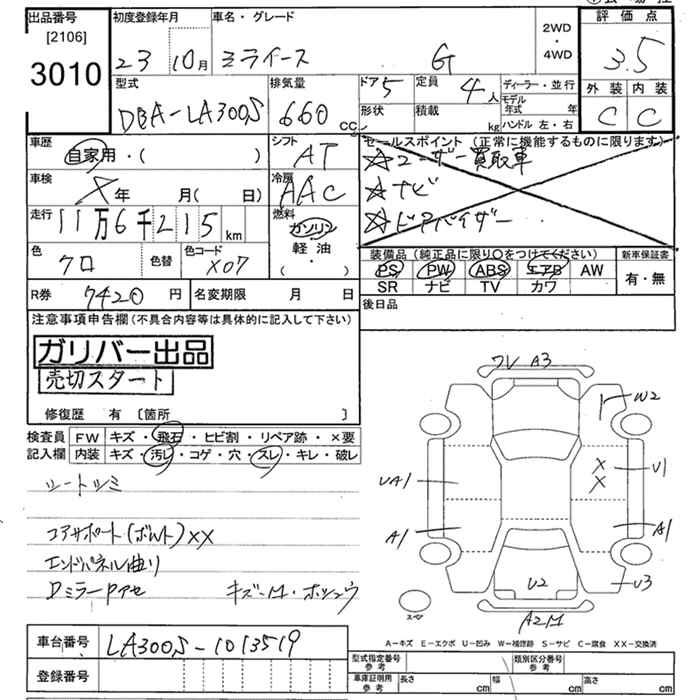 出品番号 初度登録年月 車名・グレード 2WD・4WD 評価点
[2106]
3010 23 10月 ミライース G 3.5
型式 排気量 ドア 5 定員 4人 ディーラー・並行 外装 内装
DBA-LA300S 660cc 形状 積載 kg モデル年式 年 C C
ハンドル 左・右
車歴 シフト セールスポイント(正常に機能するものに限ります)
自家用・( ) AT ☆ユーザー買取車
車検 冷房 ☆ナビ
X年 月( 日) AAC ☆ドアバイザー
走行 11万6千215km 燃料 ガソリン・軽油・( )
色 色替 色コード 装備品(純正品に限り○をつけてください) 新車保証書
クロ X07 PS PW ABS エアB AW 有・無
SR ナビ TV カワ
R券 7420円 名変期限 月 日 後日品
注意事項申告欄(不具合内容等は具体的に記入して下さい)
ガリバー出品
売切スタート
修復歴 有 [箇所 ]
検査員 FW キズ・飛石・ヒビ割・リペア跡・×要
記入欄 内装 キズ・汚レ・コゲ・穴・スレ・キレ・破レ
シートシミ
コアサポート(ボルト)XX
エンドパネル曲り
Dミラーアセ キズ・M・ホシュウ
ワレ A3
W2
X
X
U1
UA1
A1
A1
U2
U3
スペア
A2M
A-キズ E-エクボ U-凹み W-補修跡 S-サビ C-腐食 XX-交換済
車台番号 LA300S-1013519
登録番号
型式指定番号 参考 類別区分番号 参考
車庫証明用 参考 長さ cm 幅 cm 高さ cm